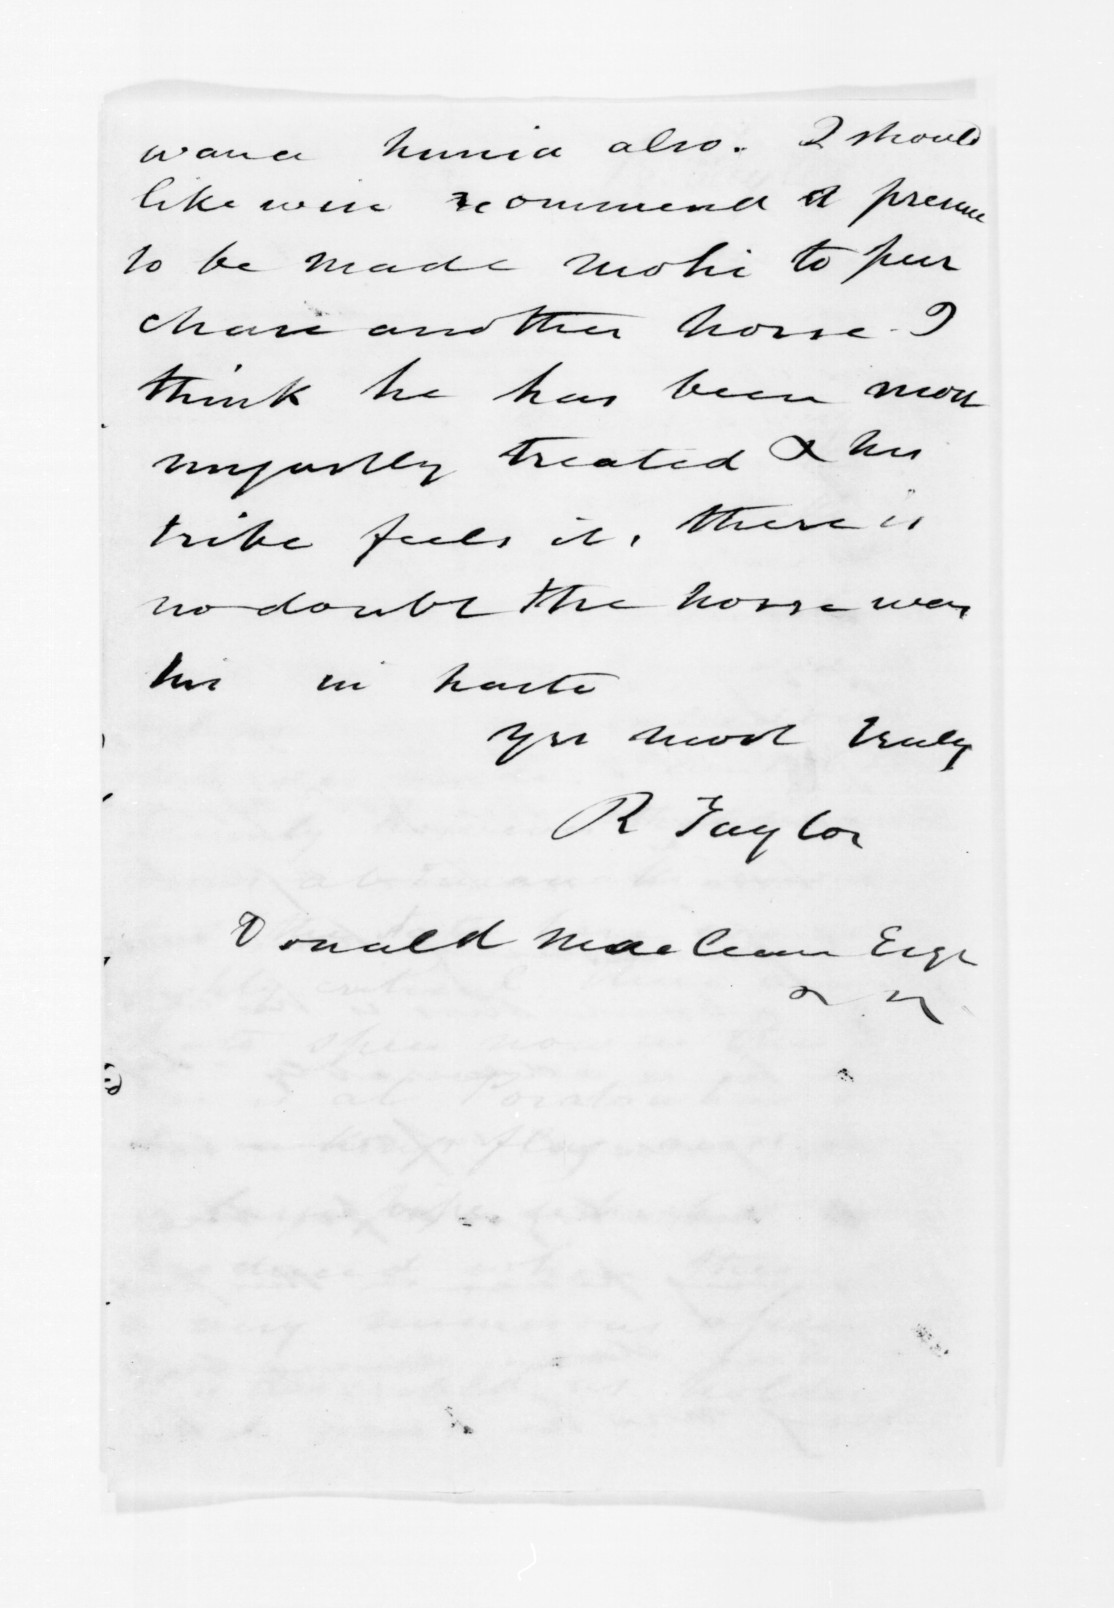 wana hunia also. I should
likewise recommend a present
to be made Mohi to pur
chase another horse - I
think he has been most
unjustly treated & his
tribe feels it, there is
no doubt the horse was
his in haste
Yrs most truly
R Taylor
Donald MacClean Esqr